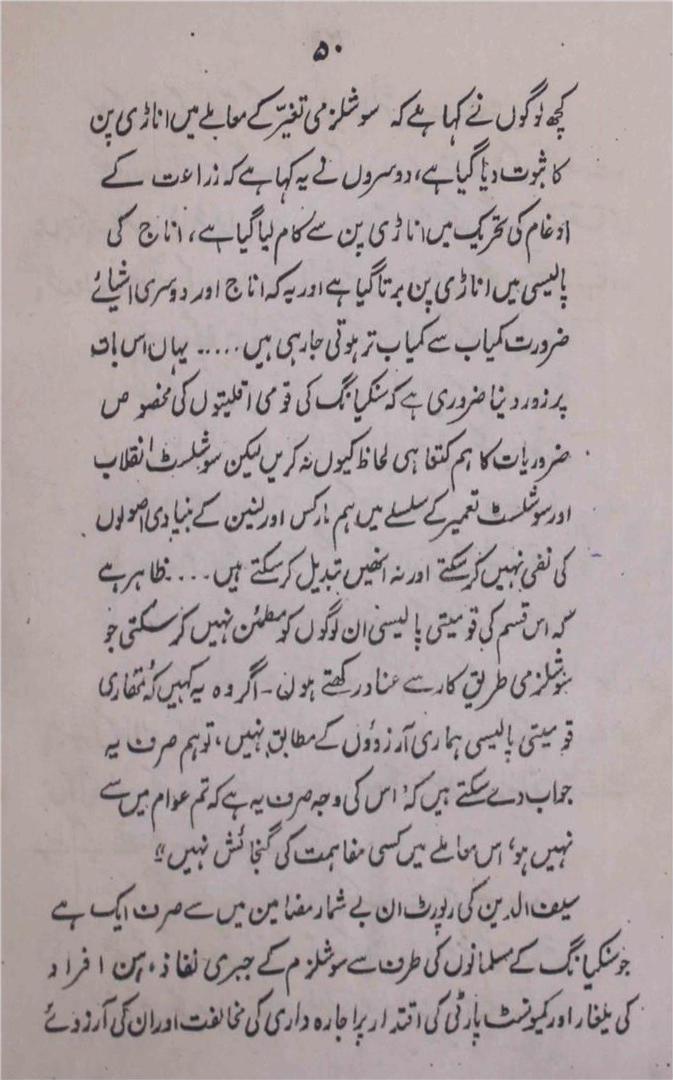 ۵۰
کچھ لوگوں نے کہا ہے کہ سوشلزمی تغیّر کے معاملے میں اناڑی پن
کا ثبوت دیا گیا ہے، دوسروں نے یہ کہا ہے کہ زراعت کے
ادغام کی تحریک میں اناڑی پن سے کام لیا گیا ہے، اناج کی
پالیسی میں اناڑی پن برتا گیا ہے اور یہ کہ اناج اور دوسری اشیائے
ضرورت کمیاب سے کمیاب تر ہوتی جا رہی ہیں .... یہاں اس بات
پر زور دینا ضروری ہے کہ سنکیانگ کی قومی اقلیتوں کی مخصوص
ضروریات کا ہم کتنا ہی لحاظ کیوں نہ کریں لیکن سوشلسٹ انقلاب
اور سوشلسٹ تعمیر کے سلسلے میں ہم مارکس اور لینن کے بنیادی اصولوں
کی نفی نہیں کر سکتے اور نہ انھیں تبدیل کر سکتے ہیں .... ظاہر ہے
کہ اس قسم کی قومیتی پالیسی ان لوگوں کو مطمئن نہیں کر سکتی جو
سوشلزمی طریق کار سے عناد رکھتے ہوں۔ اگر وہ یہ کہیں کہ ’تمھاری
قومیتی پالیسی ہماری آرزوؤں کے مطابق نہیں، تو ہم صرف یہ
جواب دے سکتے ہیں کہ ’اس کی وجہ صرف یہ ہے کہ تم عوام میں سے
نہیں ہو‘ اس معاملے میں کسی مفاہمت کی گنجائش نہیں“
سیف الدین کی رپورٹ ان بے شمار مضامین میں سے صرف ایک ہے
جو سنکیانگ کے مسلمانوں کی طرف سے سوشلزم کے جبری نفاذ، ہن افراد
کی یلغار اور کمیونسٹ پارٹی کی اقتدار پر اجارہ داری کی مخالفت اور ان کی آرزوئے